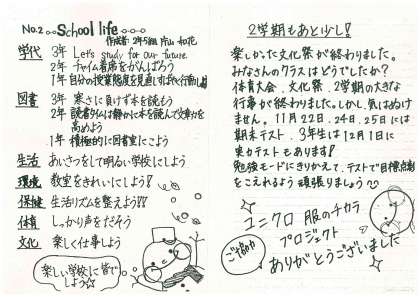 No.2 School life
作成者: 2年5組
学代 3年 Let's study for our future
2年 チャイム着席をがんばろう
1年 自分の授業態度を見直しすばやく行動しよう
図書 3年 寒さに負けず本を読もう
2年 読書タイムは静かに本を読んで文章力を
高めよう
1年 積極的に図書室にこよう
生活 あいさつをして明るい学校にしよう
環境 教室をきれいにしよう!
保健 生活リズムを整えよう!!
体育 しっかり声をだそう
文化 楽しく仕事しよう
楽しい学校に皆で
しよう
2学期もあと少し!
楽しかった文化祭が終わりました。
みなさんのクラスはどうでしたか?
体育大会、文化祭、2学期の大きな
行事が終わりました。しかし、気はぬけ
ません。11月22日、24日、25日には
期末テスト、3年生は12月1日に
実力テストもあります!
勉強モードにきりかえて、テストで目標点数
をこえれるよう頑張りましょう
ユニクロ 服のチカラ
プロジェクト
ご協力
ありがとうございました